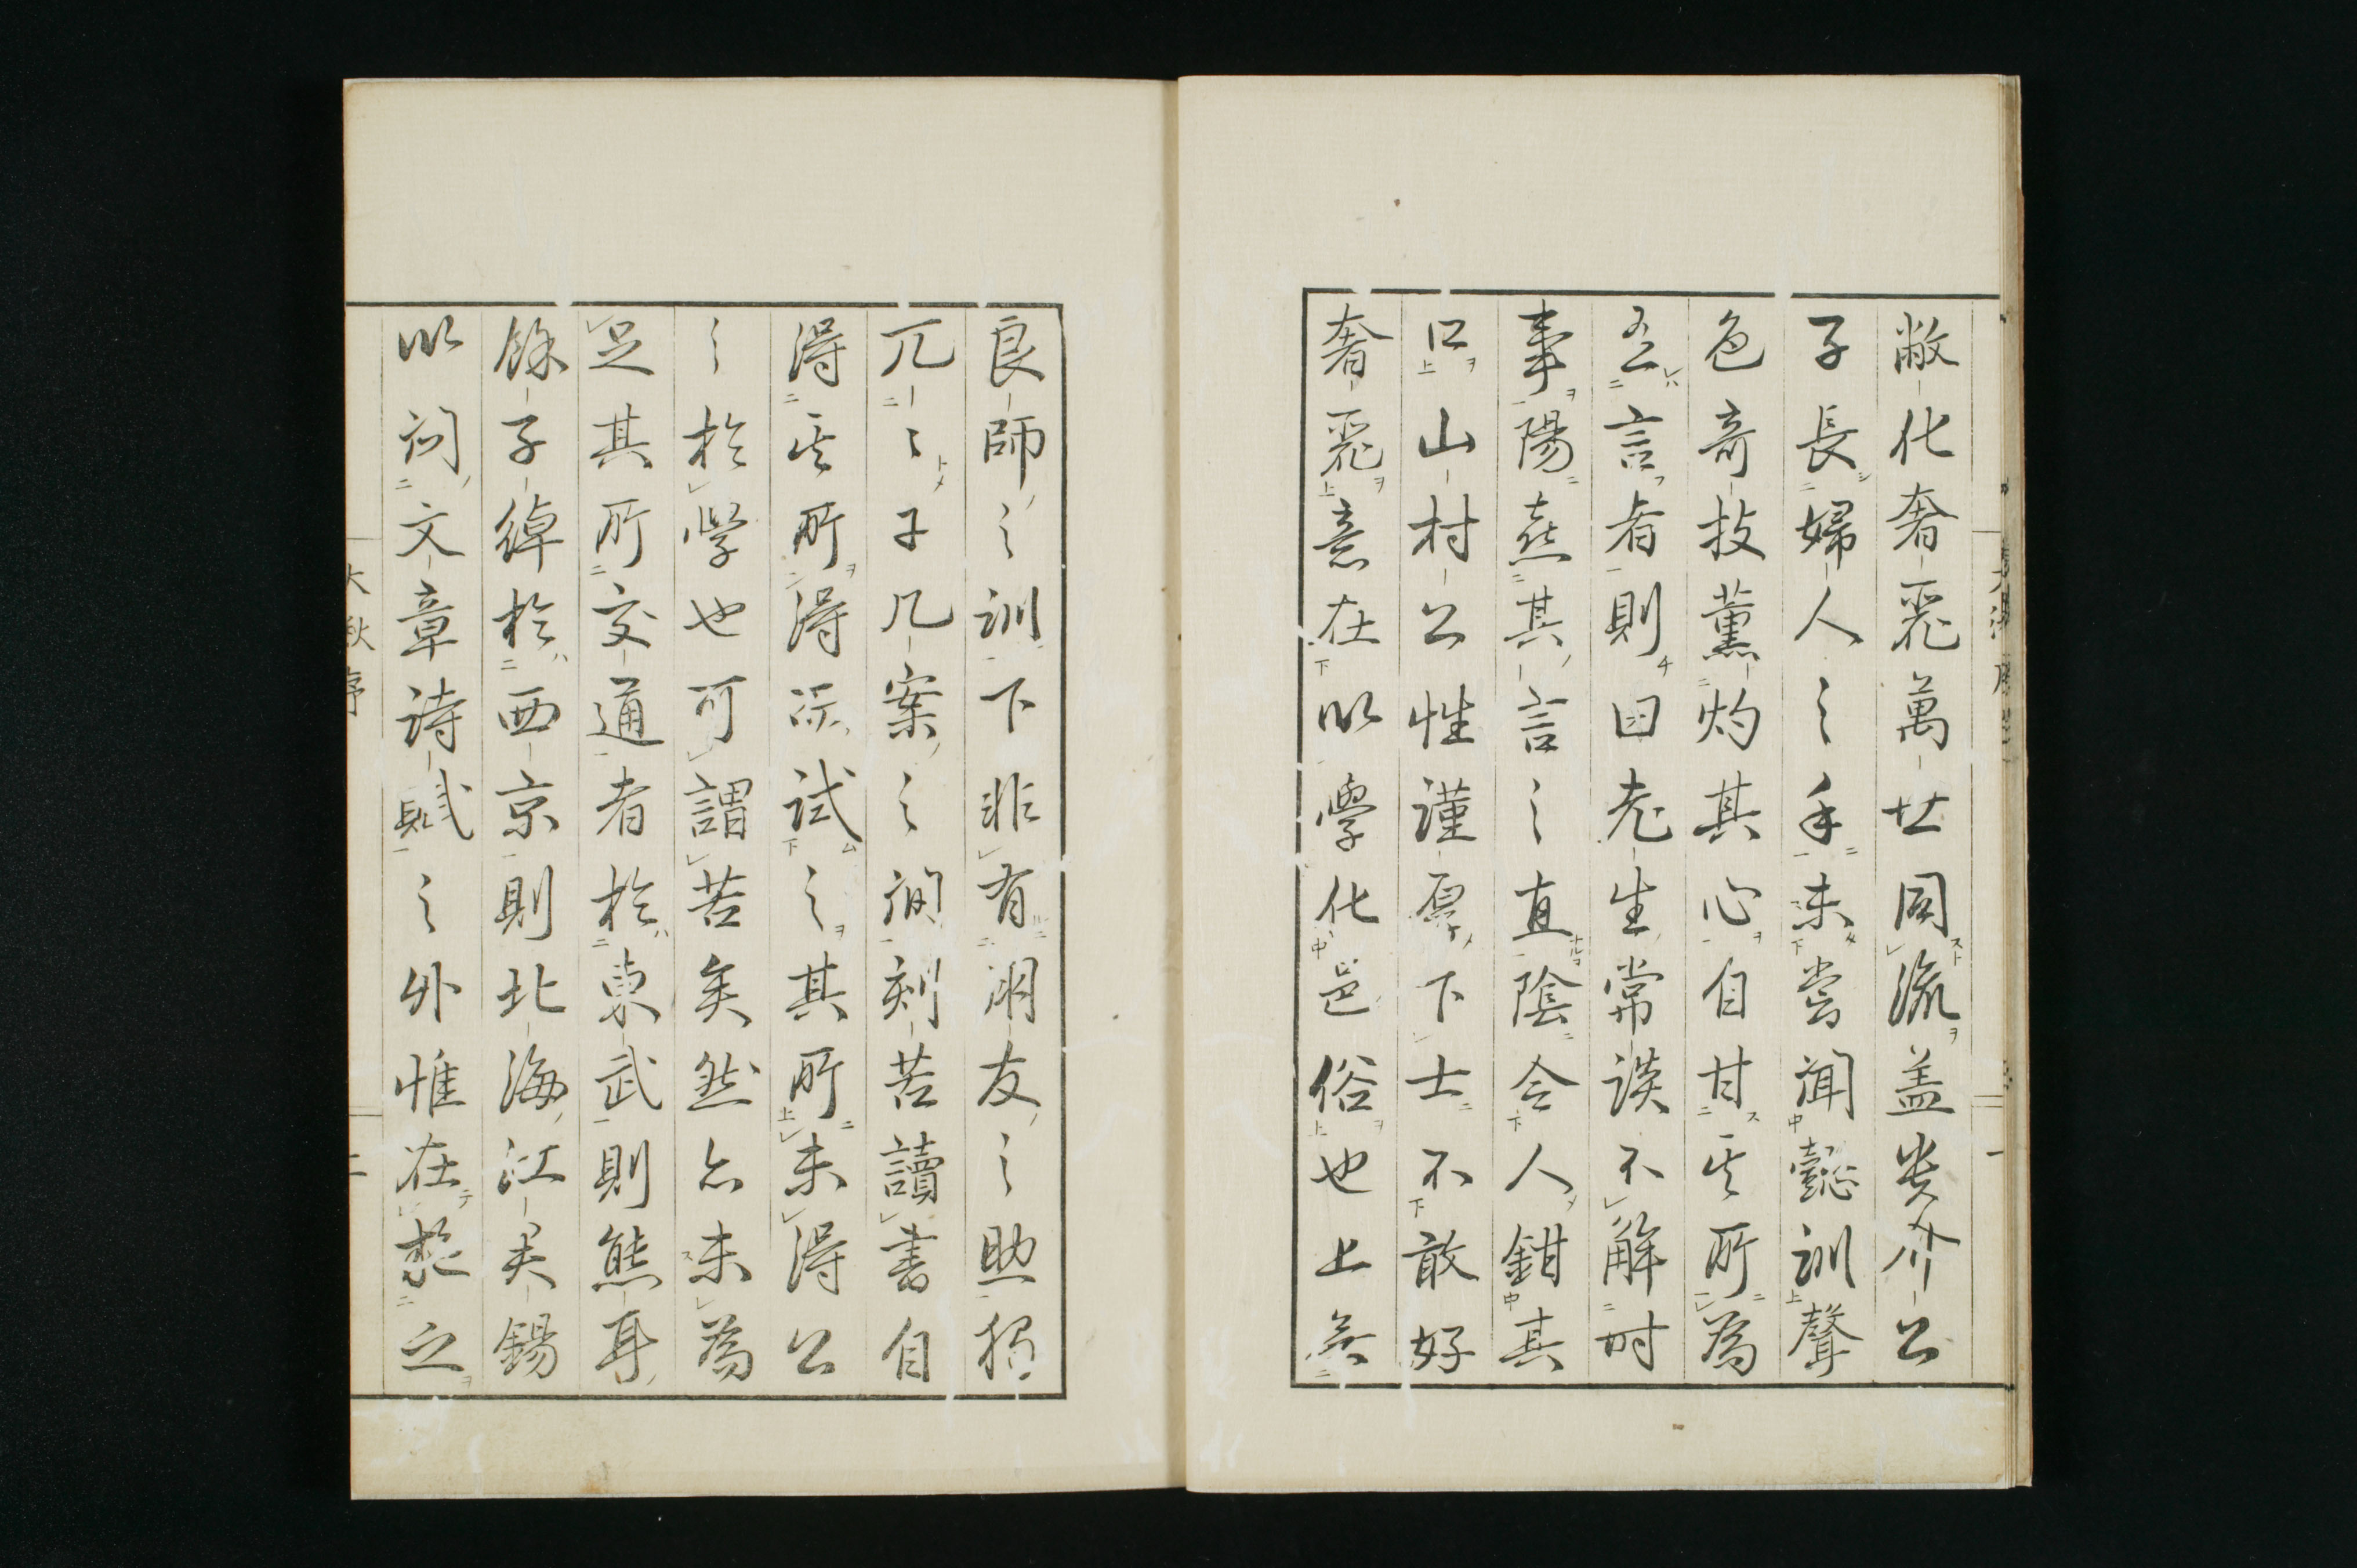 敝化奢麗萬世同流盖貴介公
子長婦人之手未嘗聞懿訓聲
色奇技薫灼其心自甘其所為
互言者則曰老生常談不解時
事陽嘉其言之直陰令人鉗其
口山村公性謹厚下士不敢好
奢麗意在以學化邑俗也上無
良師之訓下非有朋友之助独
兀〻子几案之間刻苦讀書自
得其所得以試之其所未得公
之於學也可謂苦矣然亦未為
足其所交通者於東武則熊耳
餘子綽於西京則北海江君錫
以詞文章詩賦之外惟在於之